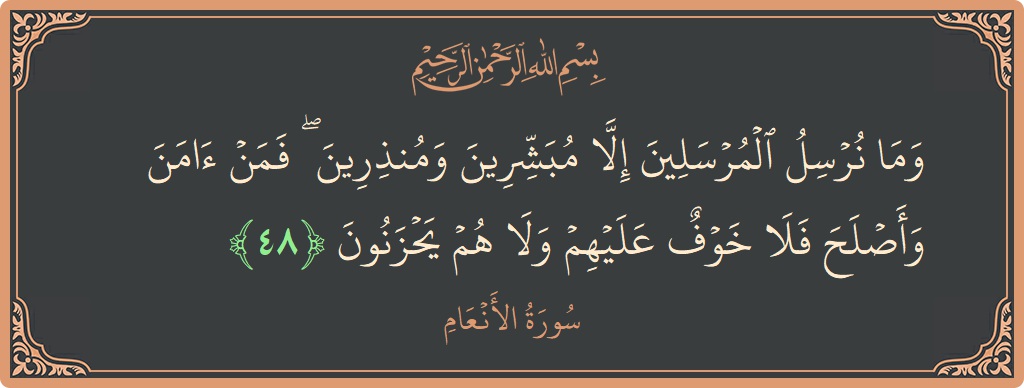 بِسْمِ اللَّهِ الرَّحْمَٰنِ الرَّحِيمِ
وَمَا نُرْسِلُ ٱلْمُرْسَلِينَ إِلَّا مُبَشِّرِينَ وَمُنذِرِينَ ۖ فَمَنْ ءَامَنَ
وَأَصْلَحَ فَلَا خَوْفٌ عَلَيْهِمْ وَلَا هُمْ يَحْزَنُونَ ﴿٤٨﴾
سُورَةُ الأَنْعَامِ